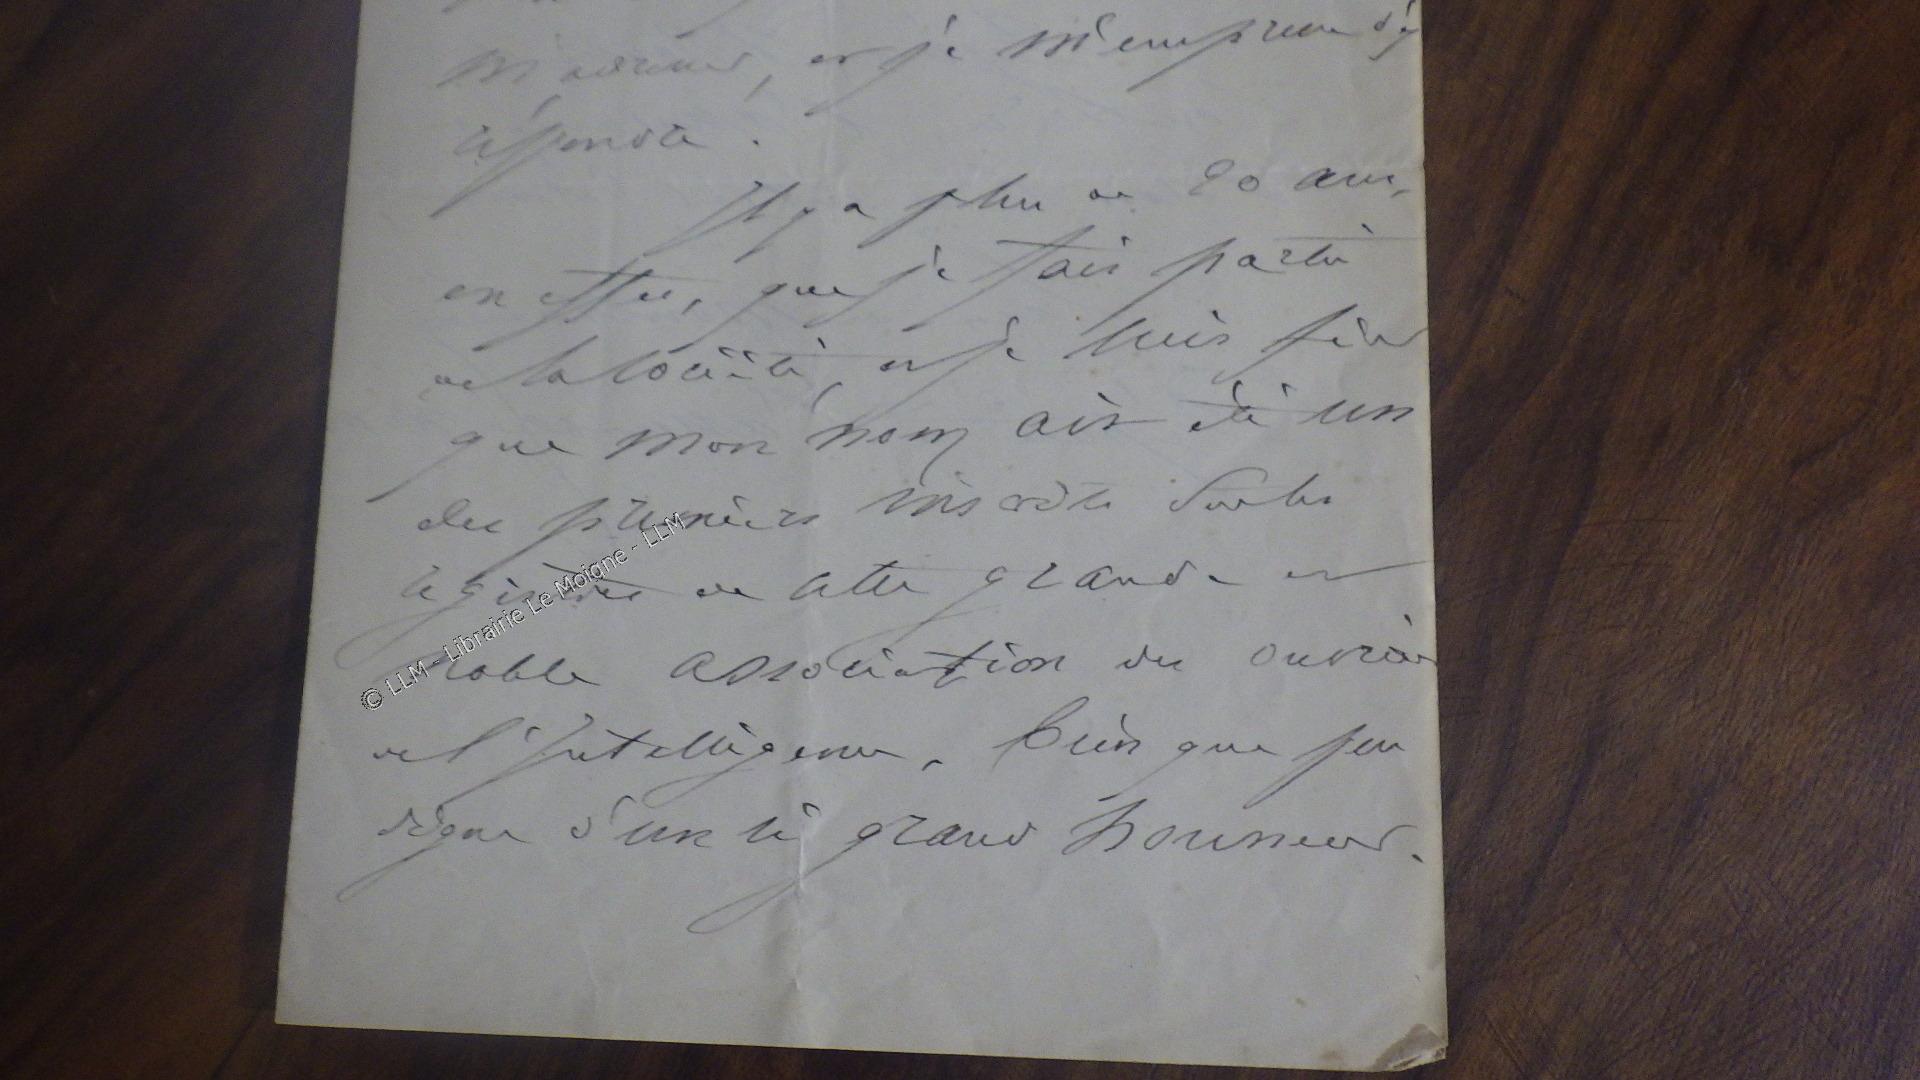 m'adresser, et je m'empresse d'y
répondre.
Il y a plus de 20 ans,
en effet, que je fais partie
de la Société, et je suis fier
que mon nom ait été un
des premiers inscrits sur les
registres de cette grande et
noble association des ouvriers
de l'Intelligence, bien que peu
digne d'un si grand honneur.
© LLM - Librairie Le Moigne - LLM